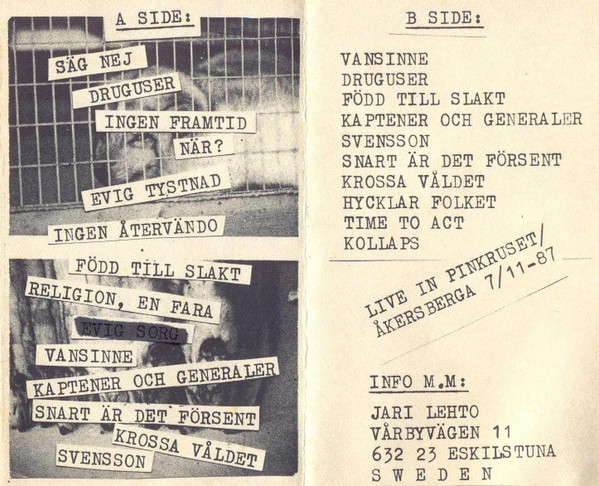 A SIDE:
SÄG NEJ
DRUGUSER
INGEN FRAMTID
NÄR?
EVIG TYSTNAD
INGEN ÅTERVÄNDO
FÖDD TILL SLAKT
RELIGION, EN FARA
EVIG SORG
VANSINNE
KAPTENER OCH GENERALER
SNART ÄR DET FÖRSENT
KROSSA VÅLDET
SVENSSON
B SIDE:
VANSINNE
DRUGUSER
FÖDD TILL SLAKT
KAPTENER OCH GENERALER
SVENSSON
SNART ÄR DET FÖRSENT
KROSSA VÅLDET
HYCKLAR FOLKET
TIME TO ACT
KOLLAPS
LIVE IN PINKRUSET/
ÅKERSBERGA 7/11-87
INFO M.M:
JARI LEHTO
VÅRBYVÄGEN 11
632 23 ESKILSTUNA
S W E D E N